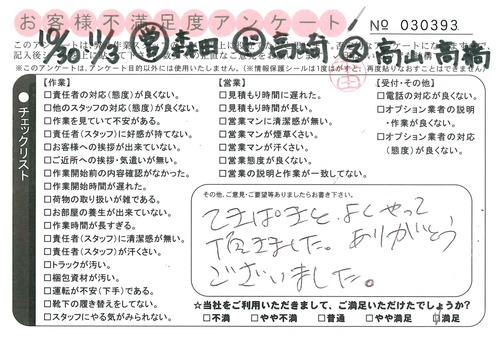 お客様不満足度アンケート
No 030393
10/30 11/3 営 森田 高崎 高山 高橋
※このアンケートは、アンケート目的以外には使用いたしません。(※情報保護シールは1度はがすと、再度貼りなおすことはできません)
チェックリスト
【作業】
□責任者の対応(態度)が良くない。
□他のスタッフの対応(態度)が良くない。
□作業を見ていて不安がある。
□責任者(スタッフ)に好感が持てない。
□お客様への挨拶が出来ていない。
□ご近所への挨拶・気遣いが無い。
□作業開始前の内容確認がなかった。
□作業開始時間が遅れた。
□荷物の取り扱いが雑である。
□お部屋の養生が出来ていない。
□作業時間が長すぎる。
□責任者(スタッフ)に清潔感が無い。
□責任者(スタッフ)が汗くさい。
□トラックが汚い。
□梱包資材が汚い。
□運転が不安(下手)である。
□靴下の履き替えをしてない。
□スタッフにやる気がみられない。
【営業】
□見積もり時間に遅れた。
□見積もり時間が長い。
□営業マンに清潔感が無い。
□営業マンが煙草くさい。
□営業マンが汗くさい。
□営業態度が良くない。
□営業の説明と作業が一致してない。
【受付・その他】
□電話の対応が良くない。
□オプション業者の説明
・作業が良くない。
□オプション業者の対応
(態度)が良くない。
その他、ご意見・ご要望等ありましたらお書き下さい。
てきぱきと よくやって
頂きました。ありがとう
ございました。
☆当社をご利用いただきまして、ご満足いただけたでしょうか?
□不満 □やや不満 □普通 □やや満足 □満足